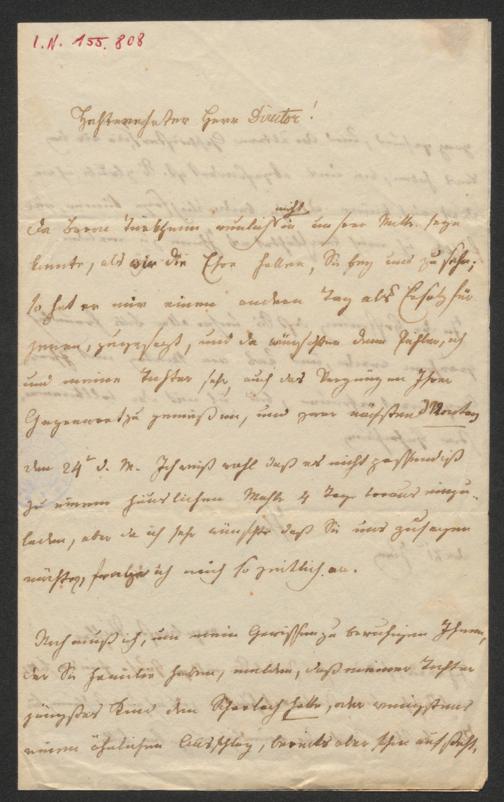 I.N. 155.808
Hochverehrter Herr Director!
Da Baron Türkheim neulich nicht in unserer Mitte seyn
konnte, als wir die Ehre hatten, Sie bey uns zu sehen;
so hat er mir einen andern Tag als Ersatz für
jenen, zugesagt, und da wünschten dann Tochter, ich
und meine Tochter sehr auch das Vergnügen Ihrer
Gegenwart zu genießen, und zwar nächsten Montag
den 24t d. M. Ich weiß wohl daß es nicht passend ist
zu einem häuslichen Mahle 4 Tage voraus einzu-
laden, aber da ich sehr wünschte daß Sie uns zusagen
möchten, frage ich mich so zeitlich an.
Noch muß ich, um mein Gewissen zu beruhigen Ihnen,
der Sie Familie haben, melden, daß meiner Tochter
jüngstes Kind den Scharlach hatte, oder wenigstens
einen ähnlichen Ausschlag, bereits aber schon aufsteht,